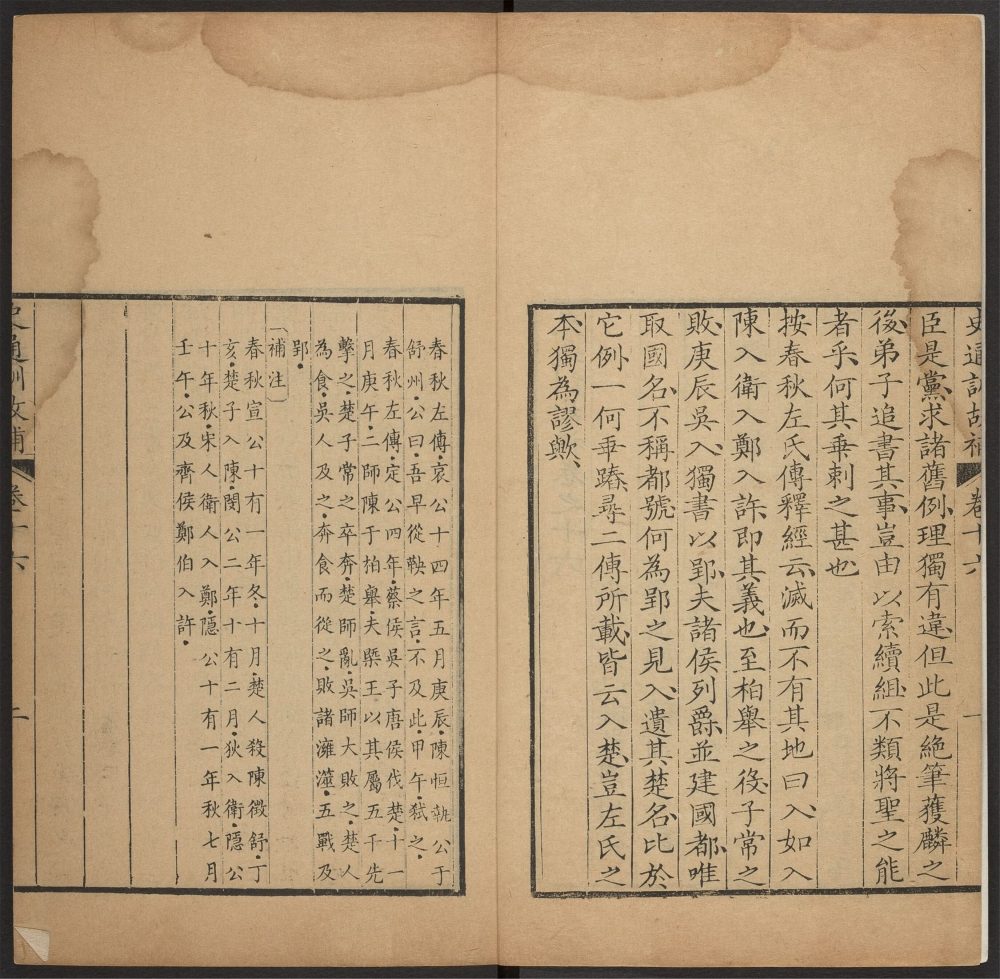 史通訓故補 卷十六 一
臣是黨求諸舊例理獨有違但此是絶筆獲麟之
後弟子追書其事豈由以索續組不類將聖之能
者乎何其乖剌之甚也
按春秋左氏傳釋經云滅而不有其地曰入如入
陳入衛入鄭入許即其義也至柏舉之役子常之
敗庚辰吳入獨書以郢夫諸侯列爵並建國都唯
取國名不稱都號何為郢之見入遺其楚名比於
它例一何乖踳尋二傳所載皆云入楚豈左氏之
本獨為謬歟
春秋左傳哀公十四年五月庚辰陳恒執公于
舒州公曰吾早從鞅之言不及此甲午弒之
春秋左傳定公四年蔡侯吳子唐侯伐楚十一
月庚午二師陳于柏舉夫槩王以其屬五千先
擊之楚子常之卒奔楚師亂吳師大敗之楚人
為食吳人及之奔食而從之敗諸濉澨五戰及
郢
補注
春秋宣公十有一年冬十月楚人殺陳徵舒丁
亥楚子入陳閔公二年十有二月狄入衛隱公
十年秋宋人衛人入鄭隱公十有一年秋七月
壬午公及齊侯鄭伯入許
史通訓故補 卷十六 二